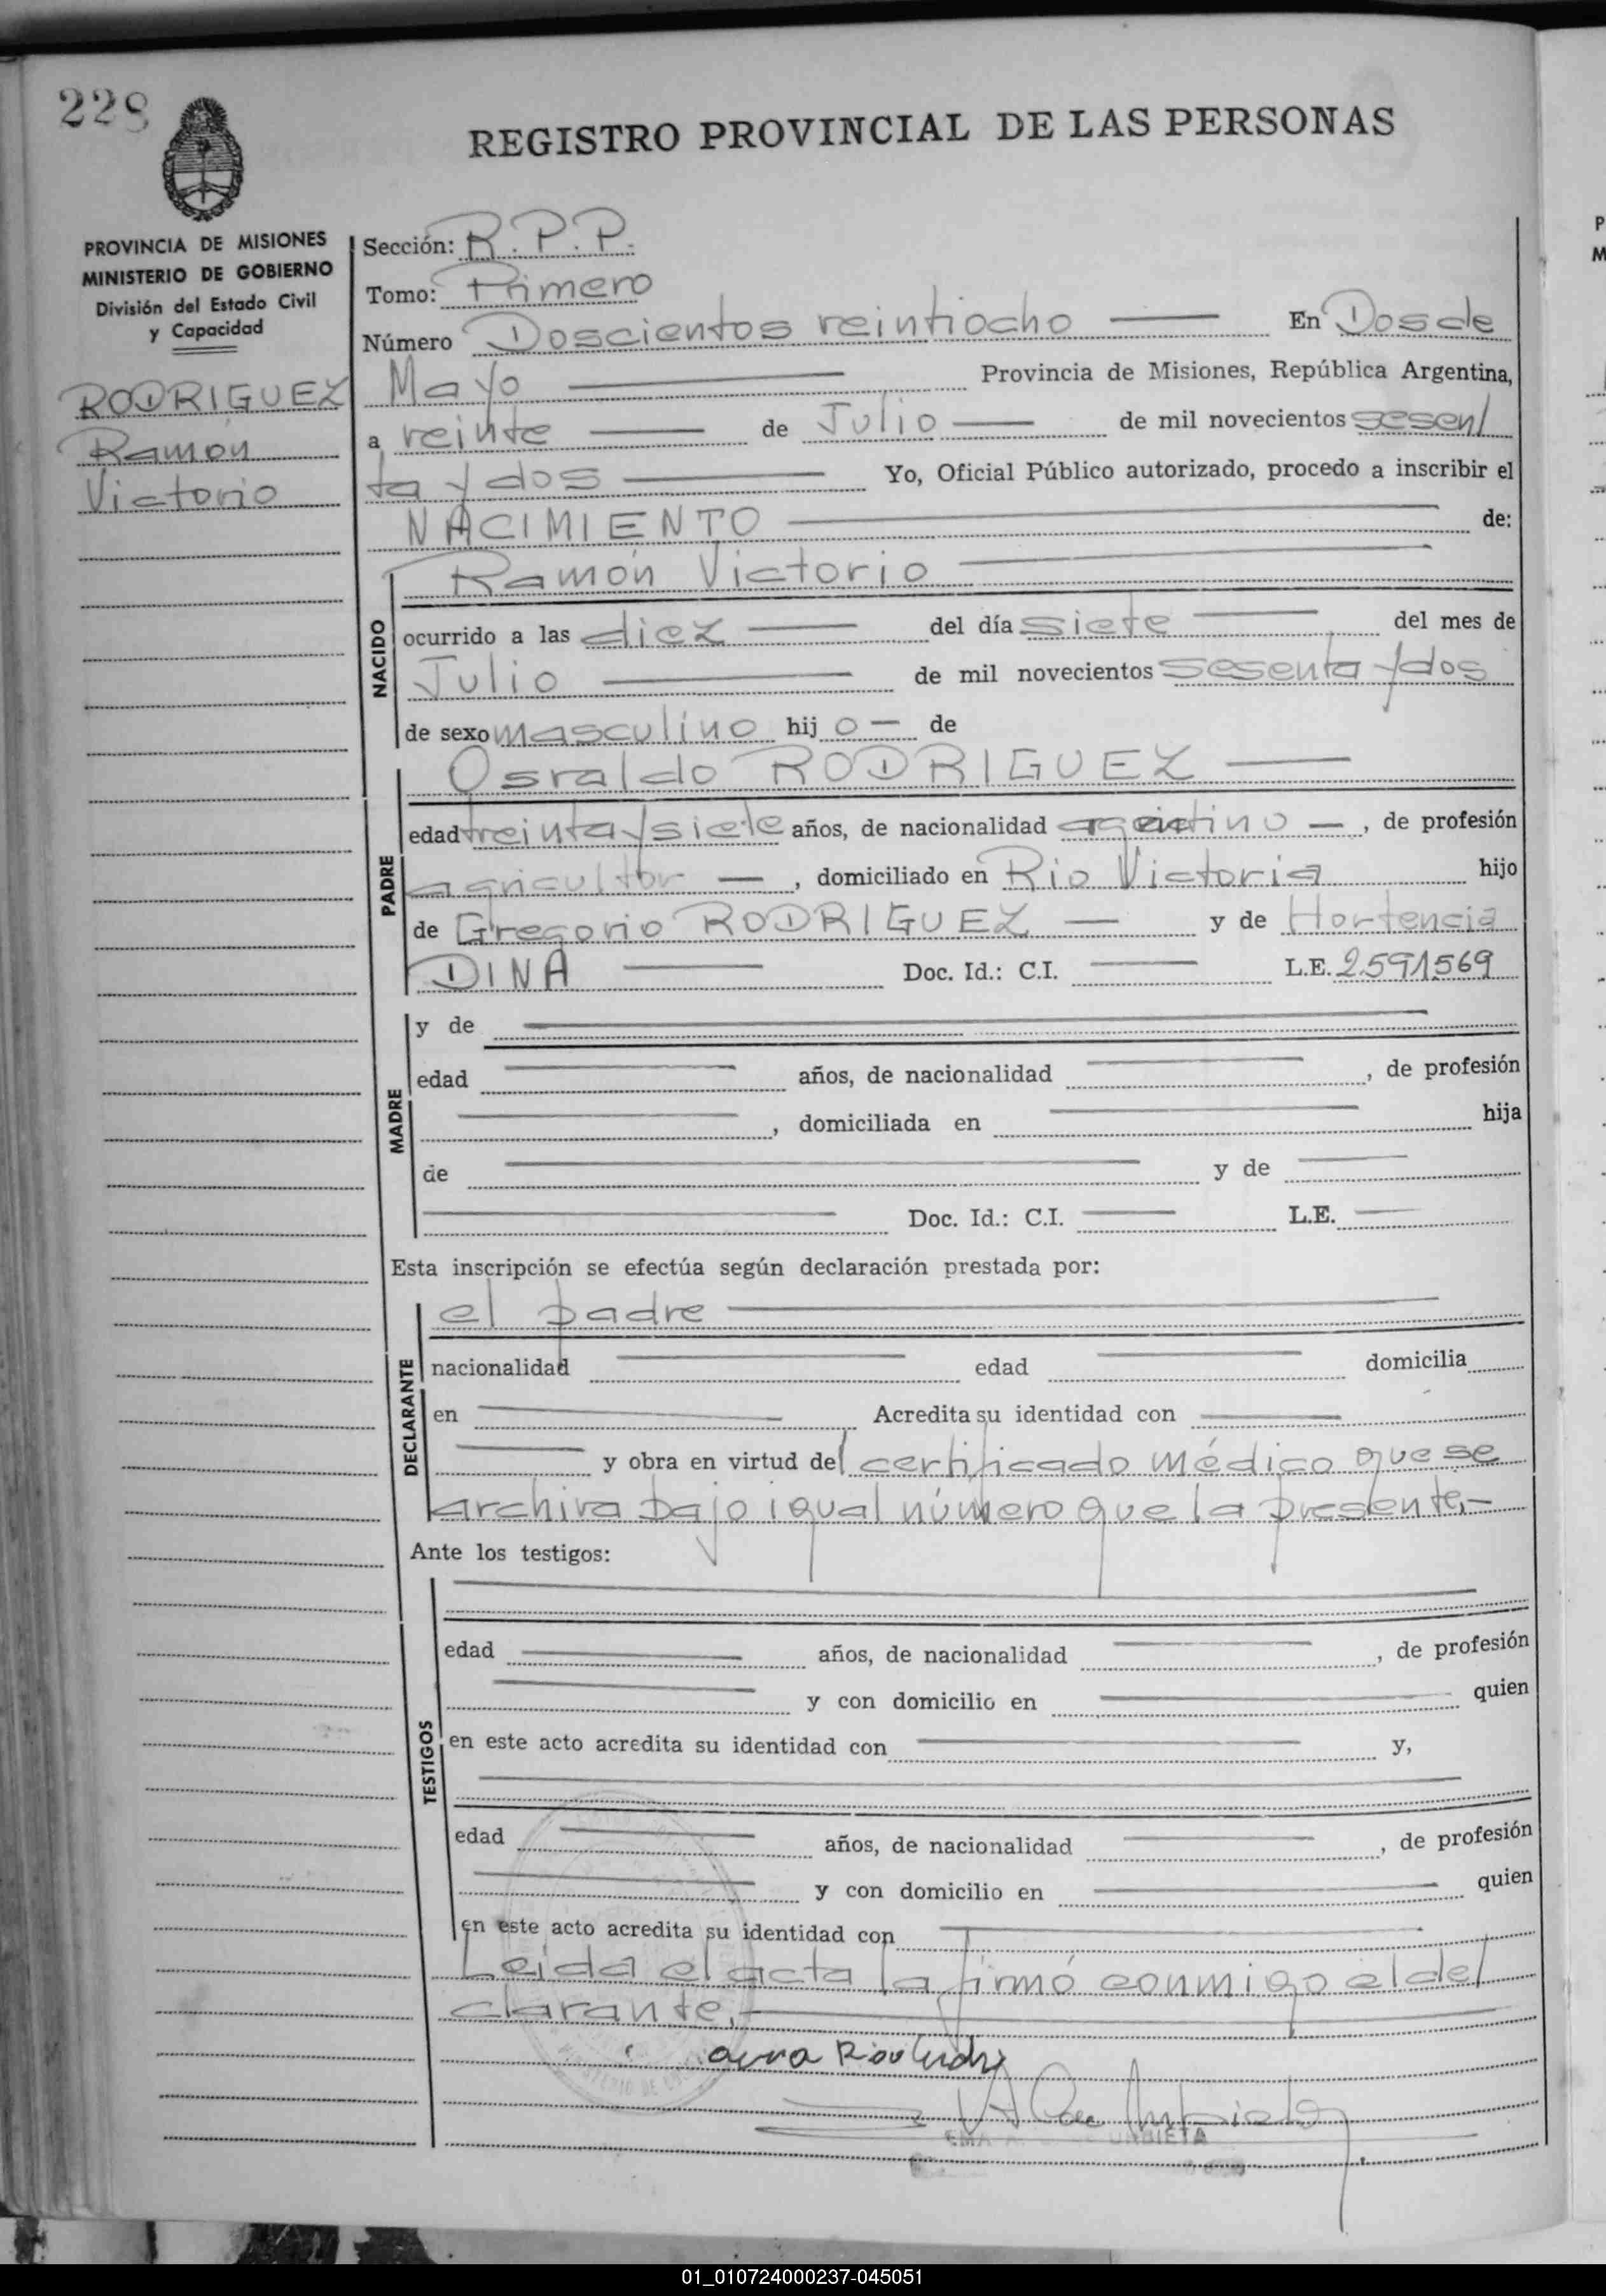 228
REGISTRO PROVINCIAL DE LAS PERSONAS
PROVINCIA DE MISIONES
MINISTERIO DE GOBIERNO
División del Estado Civil
y Capacidad
RODRIGUEZ
Ramón
Victorio
Sección: R.P.P.
Tomo: Primero
Número Doscientos veintiocho En Dos de
Mayo Provincia de Misiones, República Argentina,
a veinte de Julio de mil novecientos sesen/
ta y dos Yo, Oficial Público autorizado, procedo a inscribir el
NACIMIENTO de:
NACIDO
Ramón Victorio
ocurrido a las diez del día siete del mes de
Julio de mil novecientos sesenta y dos
de sexo masculino hij o de
PADRE
Osvaldo RODRIGUEZ
edad treinta y siete años, de nacionalidad argentino , de profesión
agricultor , domiciliado en Rio Victoria hijo
de Gregorio RODRIGUEZ y de Hortencia
DINA Doc. Id.: C.I. L.E. 2.591.569
MADRE
y de
edad años, de nacionalidad , de profesión
, domiciliada en hija
de y de
Doc. Id.: C.I. L.E.
Esta inscripción se efectúa según declaración prestada por:
DECLARANTE
el padre
nacionalidad edad domicilia
en Acredita su identidad con
y obra en virtud del certificado médico que se
archiva bajo igual número que la presente.-
Ante los testigos:
TESTIGOS
edad años, de nacionalidad , de profesión
y con domicilio en quien
en este acto acredita su identidad con y,
edad años, de nacionalidad , de profesión
y con domicilio en quien
en este acto acredita su identidad con
Leida el acta la firmó conmigo el de/
clarante.-
URBIETA
01_010724000237-045051